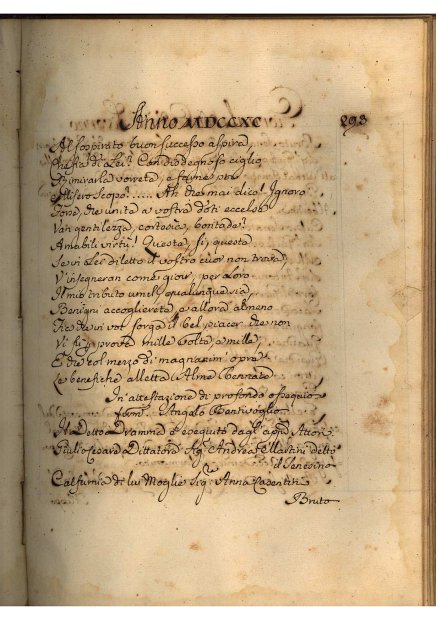 Anno MDCCXC 293
Al sospirato buon successo aspira,
Che fia di Lei? Con disdegnoso ciglio
Rimirarla vorrete, e farne poi
Misero scopo? ..... Ah che mai dico! Ignoro
Forse, che unita a vostre doti eccelse
Van gentilezza, cortesia, bontade?
Amabili virtù! Queste, sì, queste
Se in Lei diletto il vostro cuor non trova,
V'insegneran come gioir, per loro
Il mio tributo umil, qualunque sia,
Benigni accoglierete, e allora almeno
che in voi sorga il bel piacer che non
Vi si provò mille volte, e mille,
E che col mezzo di magnanim' opre
Le benefiche alletta Alme bennate
In attestazione di profondo ossequio
Angelo Bentivoglio
Il detto Dramma è eseguito dagl' Attori
Giulio Cesare Dittatore Sig. Andrea Martini detto
il Senesino
Calfurnia di lui Moglie Sig. Anna Casentini
Bruto